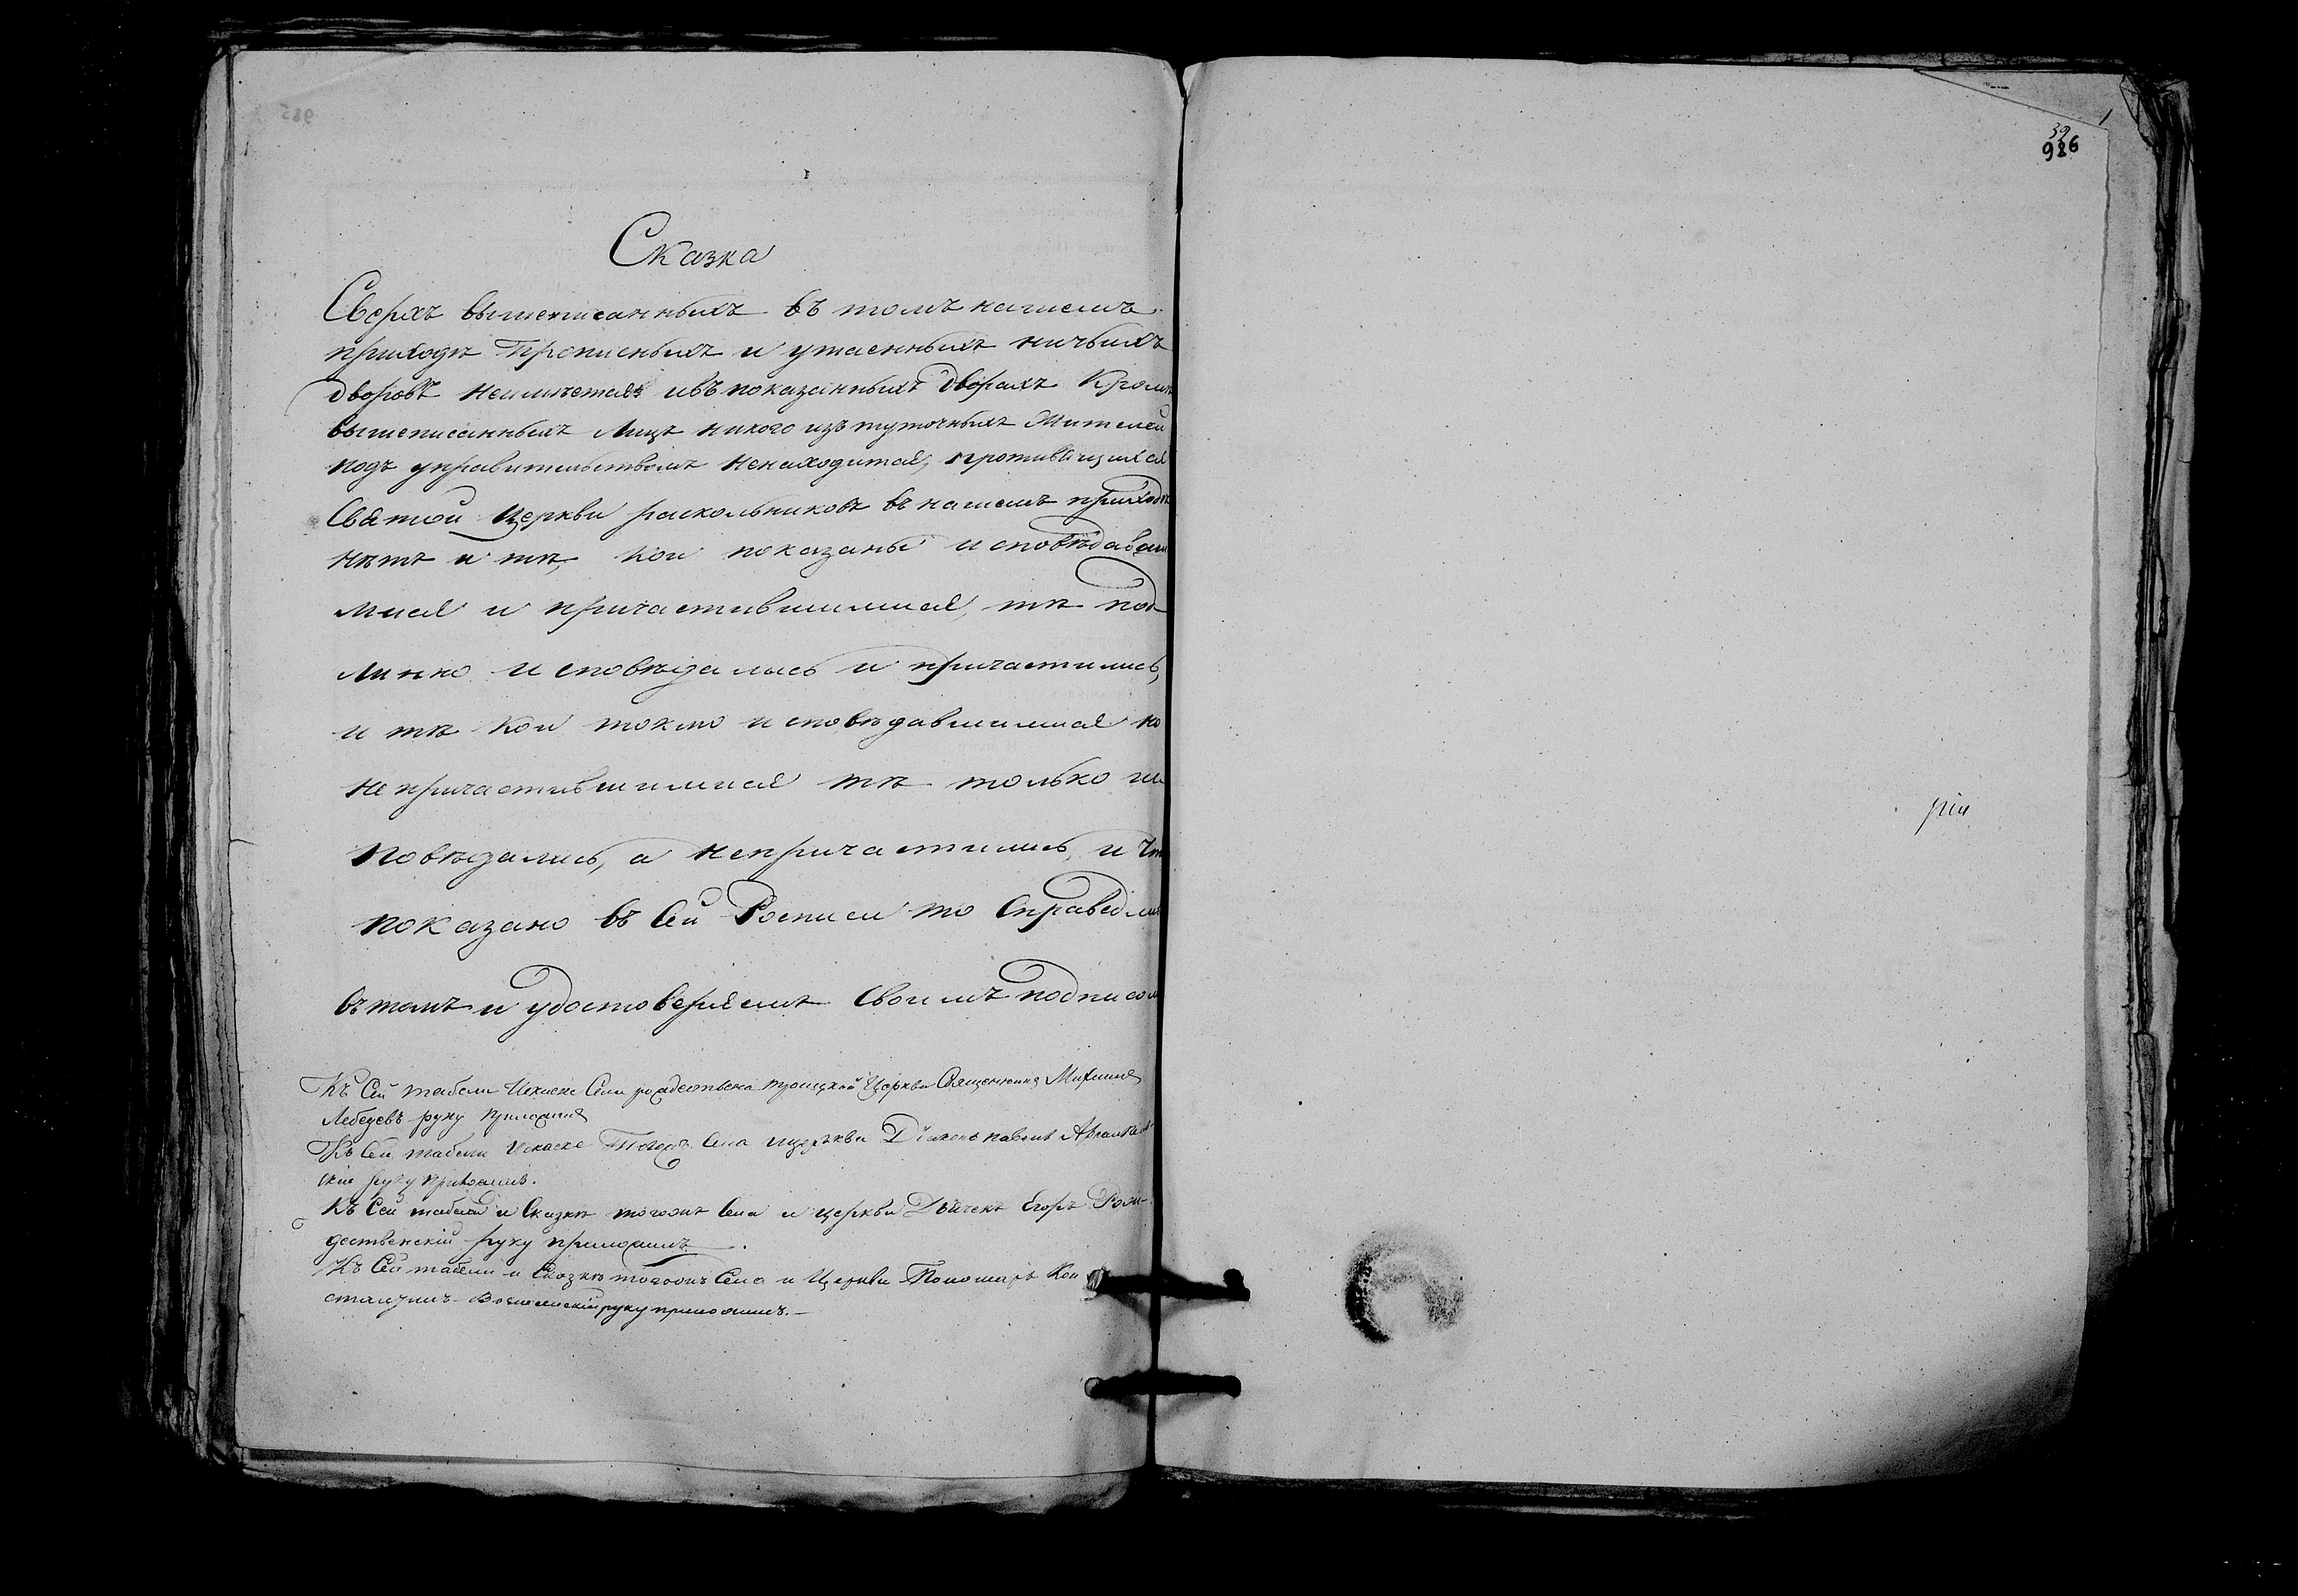 Сказка
Сверхъ вышеписанныхъ въ томъ нашемъ
приходѣ прописныхъ и утаенныхъ ничьихъ
дворовъ неимѣется ивъ показанныхъ дворахъ Кромѣ
вышеписанныхъ Лицъ никого изъ туточныхъ Жителей
подъ управительствомъ ненаходится, противящихся
Святой Церкви раскольниковъ въ нашемъ приходѣ
нѣтъ и тѣ, кои показаны исповѣдавши
мися и причастившимися, тѣ под
линно исповѣдались и причастились,
и тѣ кои токмо исповѣдавшимися но
непричастившимися тѣ только ис
повѣдались, а непричастились, и что
показано въ сей Росписи то Справедли
въ томъ и удостоверяемъ Своимъ подписом
Къ Сей табели Искаске Села рождествена троицкой Церкви Священникъ Михаилъ
Лебедевъ руку приложилъ
Къ Сей табели Искаске Тогожъ Села ицеркви Дьяконъ павелъ
руку приложилъ.
Къ Сей табели и Сказкѣ тогожъ Села и церкви Дьячекъ Егоръ Рож-
дественскій руку приложилъ.
Къ Сей табели и Сказкѣ тогожъ Села и Церкви Пономарь Кон
руку приложилъ.
39
986
985